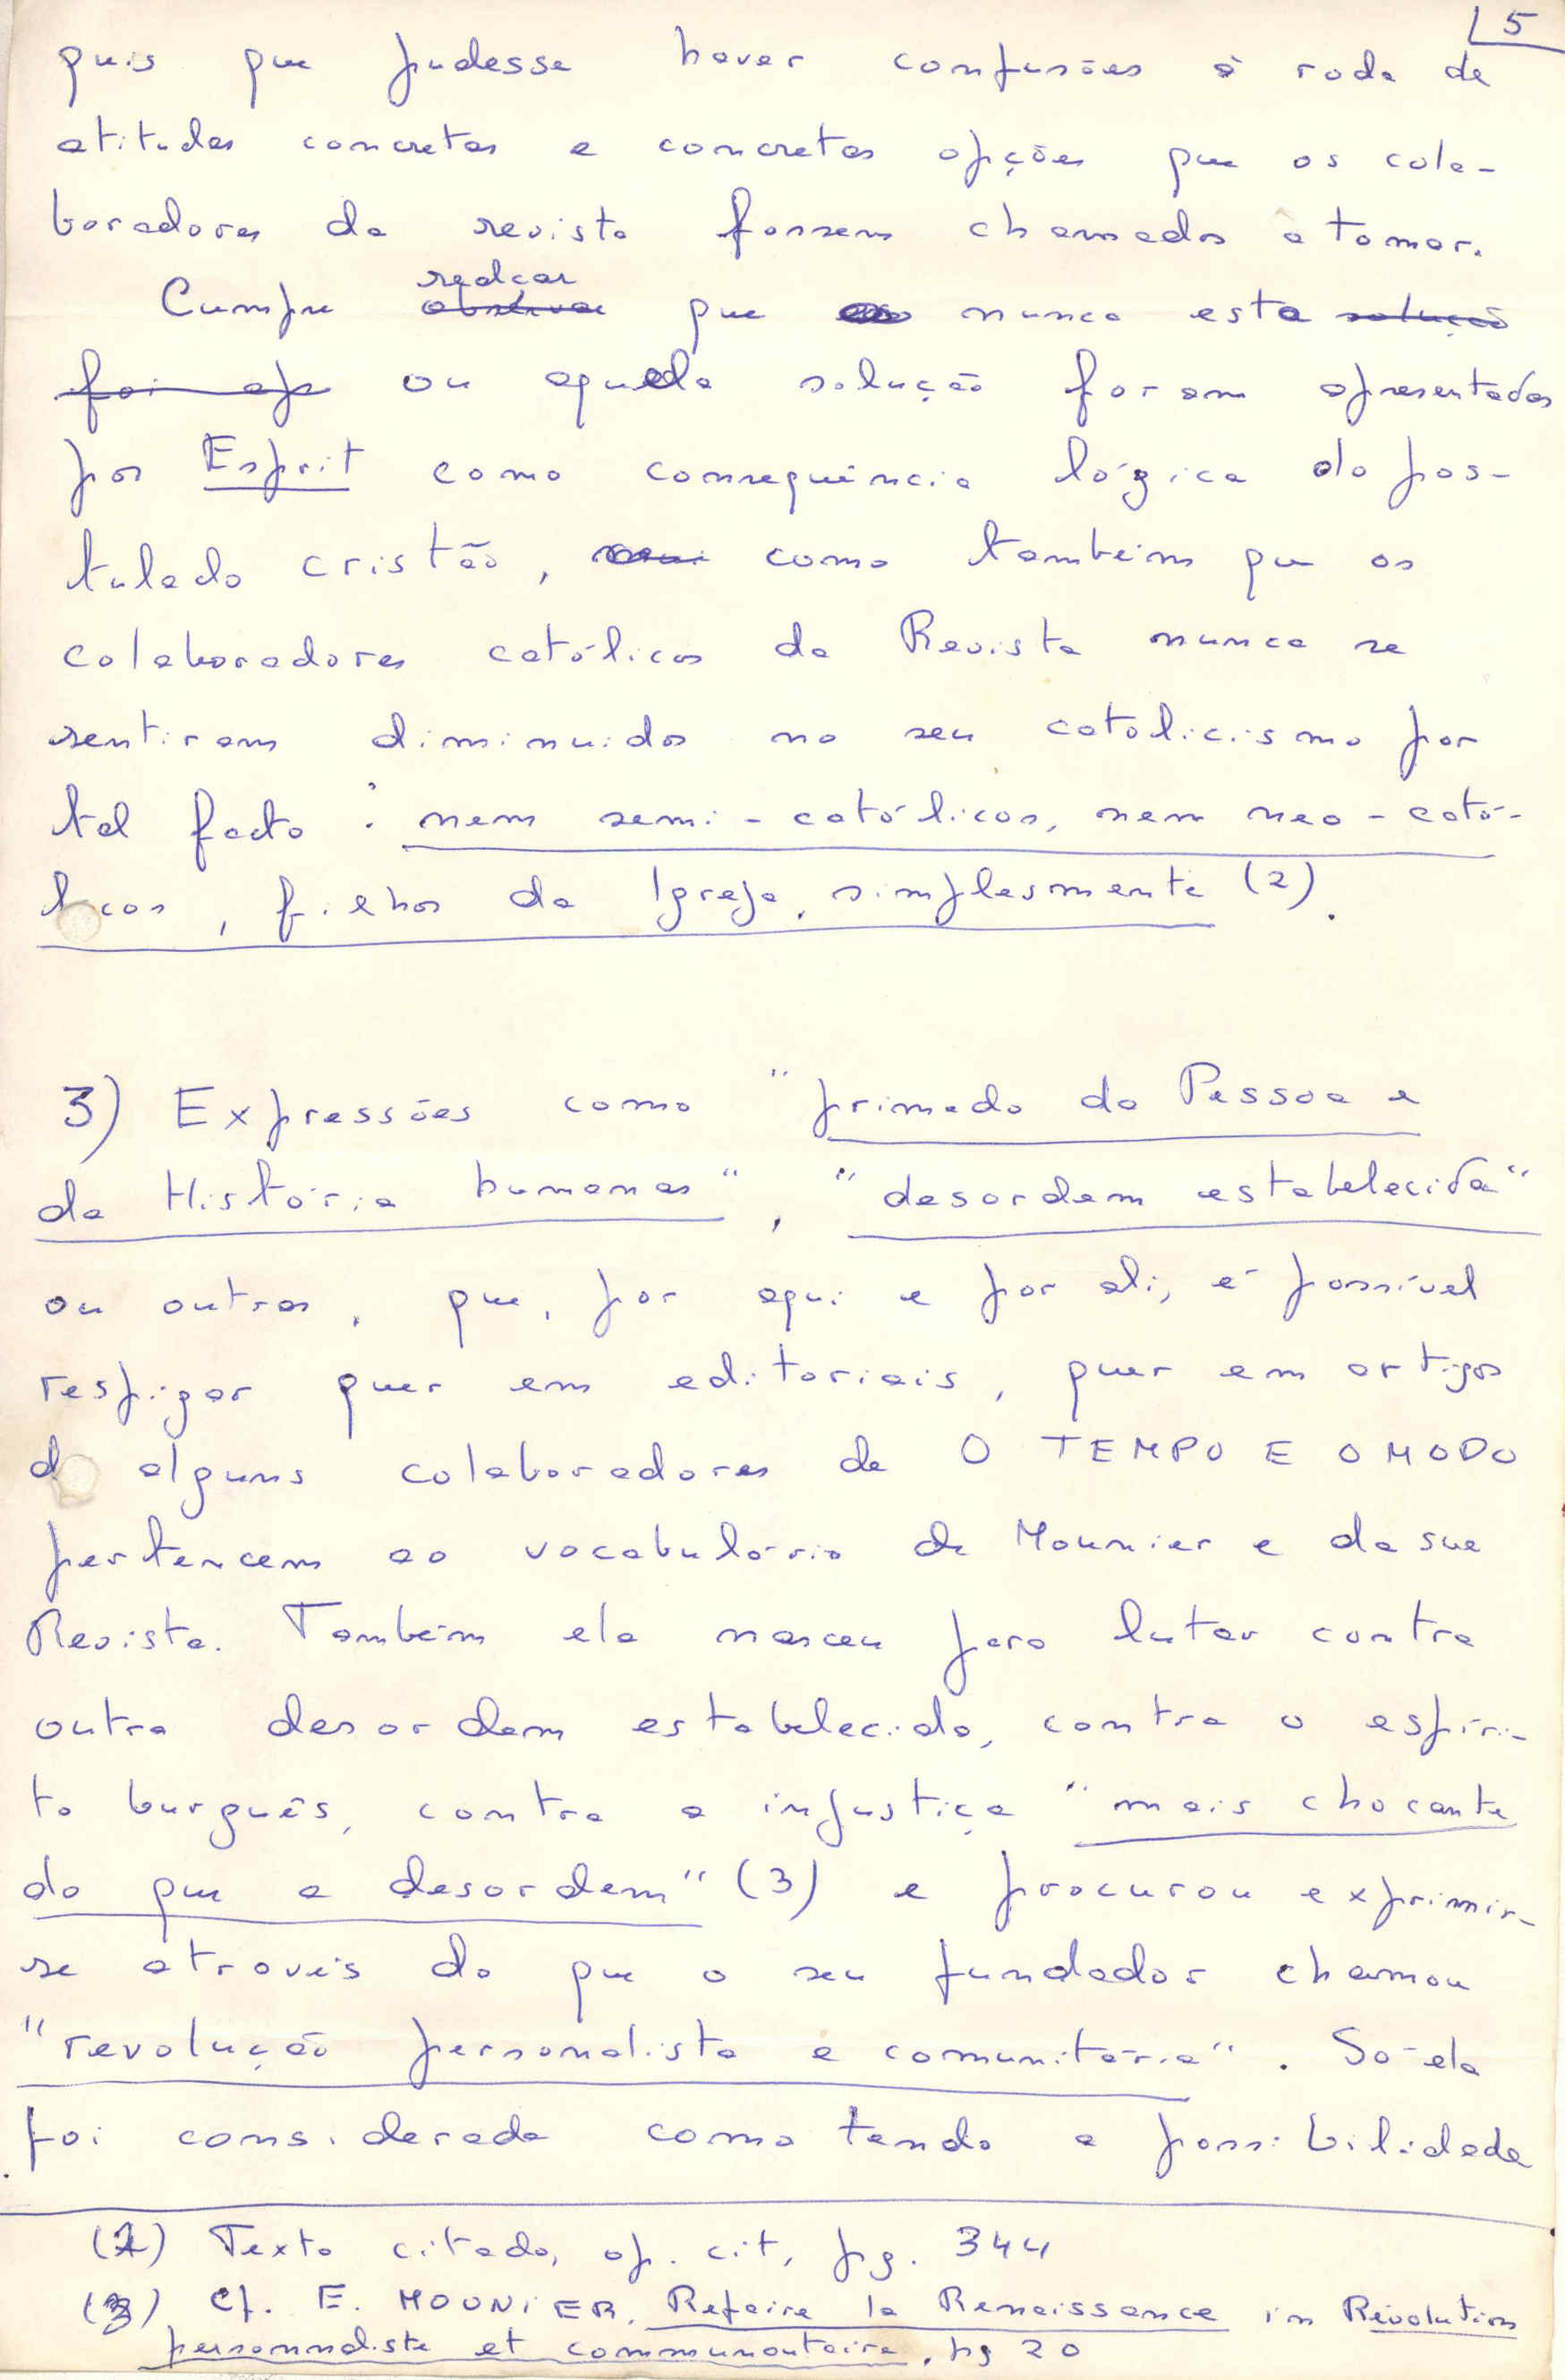 5
quis que pudesse haver confusões à roda de
atitudes concretas e concretas opções que os cola-
boradores da revista fossem chamados a tomar.
realçar
Cumpre observar que nunca esta solução
foi ap ou aquela solução foram apresentadas
por Esprit como consequência lógica do pos-
tulado cristão, como também que os
colaboradores católicos da Revista nunca se
sentiram diminuidos no seu catolicismo por
tal facto: nem semi-católicos, nem neo-cató-
licos, filhos da Igreja, simplesmente (2).
3) Expressões como "primado da Pessoa e
da História humanas", "desordem estabelecida"
ou outras, que, por aqui e por ali, é possível
respigar quer em editoriais, quer em artigos
de alguns colaboradores de O TEMPO E O MODO
pertencem ao vocabulário de Mounier e da sua
Revista. Também ela nasceu para lutar contra
outra desordem estabelecida, contra o espíri-
to burguês, contra a injustiça "mais chocante
do que a desordem" (3) e procurou exprimir-
se através do que o seu fundador chamou
"revolução personalista e comunitária". Só ela
foi considerada como tendo a possibilidade
(2) Texto citado, op. cit, pg. 344
(3) Cf. E. MOUNIER, Refaire la Renaissance in Révolution
personnaliste et communautaire, pg 20